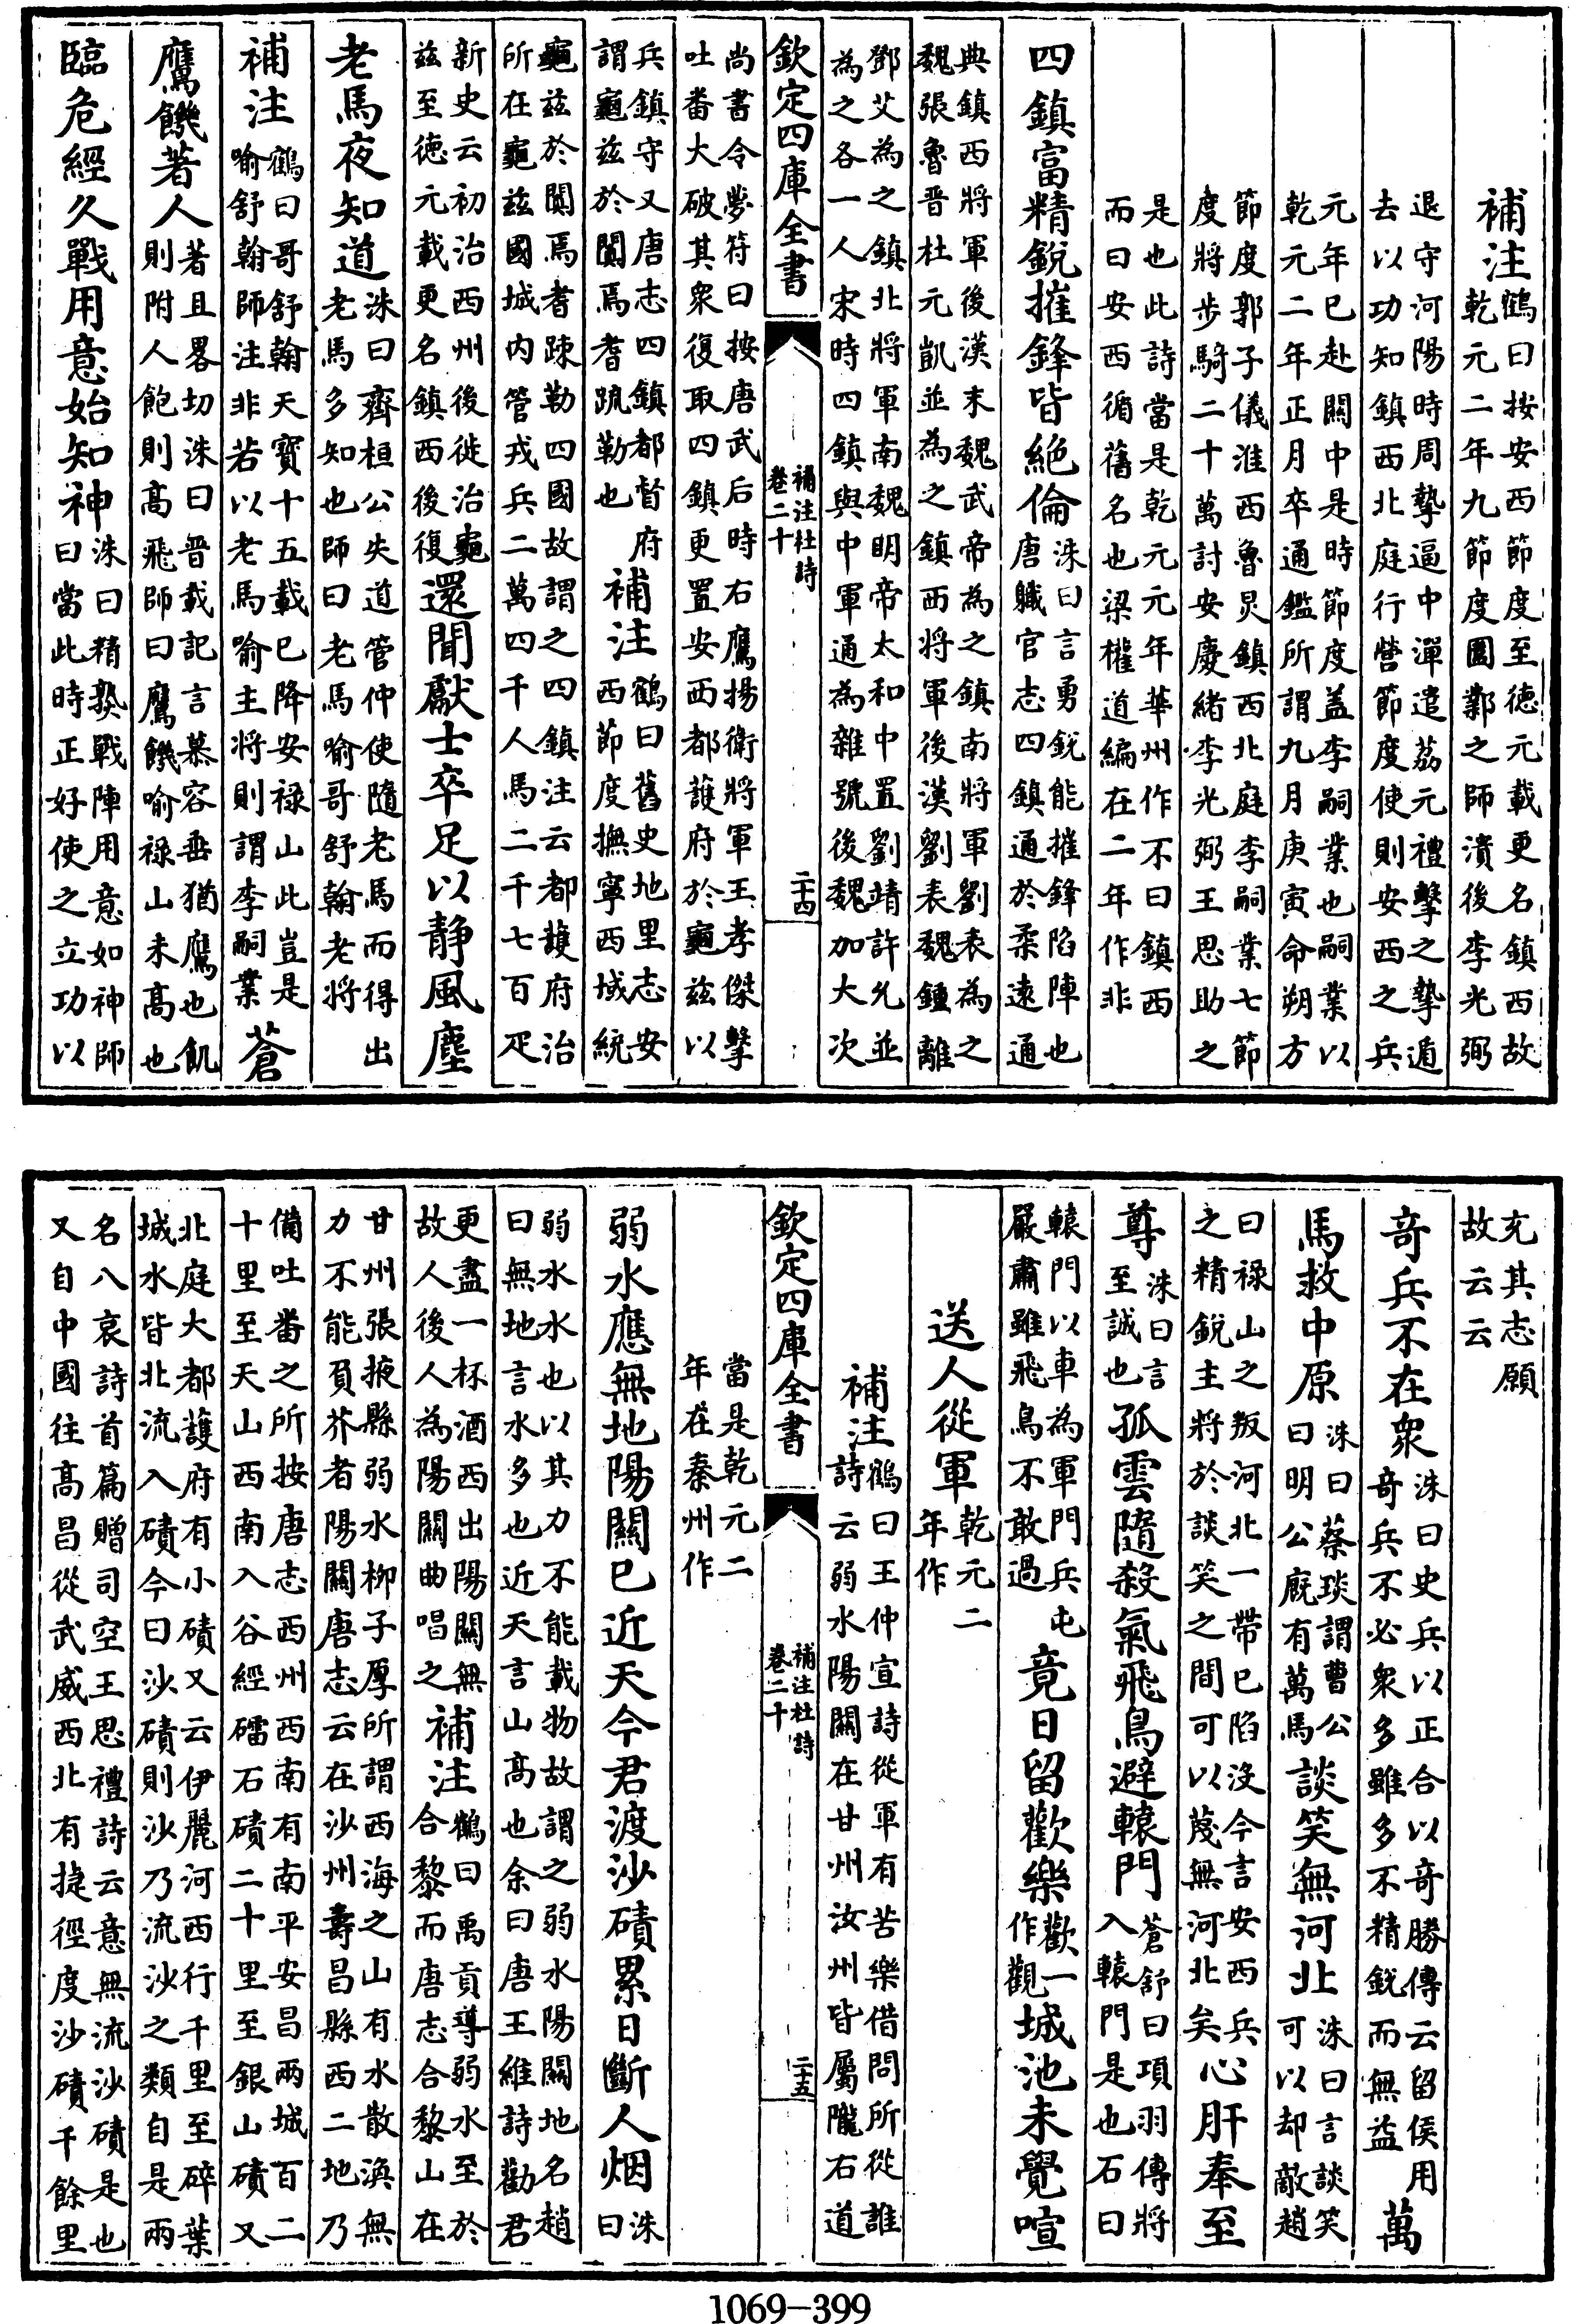 補注鶴曰按安西節度至德元載更名鎮西故
乾元二年九節度圍鄴之師潰後李光弼
退守河陽時周摯逼中潬遣荔元禮擊之摯遁
去以功知鎮西北庭行營節度使則安西之兵
元年已赴關中是時節度葢李嗣業也嗣業以
乾元二年正月卒通鑑所謂九月庚寅命朔方
節度郭子儀淮西魯炅鎮西北庭李嗣業七節
度將步騎二十萬討安慶緒李光弼王思助之
是也此詩當是乾元元年華州作不曰鎮西
而曰安西循舊名也梁權道編在二年作非
四鎮富精銳摧鋒皆絶倫洙曰言勇銳能摧鋒陷陣也
唐職官志四鎮通於柔遠通
典鎮西將軍後漢末魏武帝為之鎮南將軍劉表為之
魏張魯晉杜元凱並為之鎮西將軍後漢劉表魏鍾離
鄧艾為之鎮北將軍南魏明帝太和中置劉靖許允並
為之各一人宋時四鎮與中軍通為雜號後魏加大次
欽定四庫全書
補注杜詩
卷二十
二十四
尚書令夢符曰按唐武后時右鷹揚衛將軍王孝傑擊
吐番大破其衆復取四鎮更置安西都護府於龜兹以
兵鎮守又唐志四鎮都督府
謂龜兹於闐焉耆疏勒也補注鶴曰舊史地里志安
西節度撫寧西域統
龜兹於闐焉耆疎勒四國故謂之四鎮注云都䕶府治
所在龜兹國城内管戎兵二萬四千人馬二千七百疋
新史云初治西州後徙治龜
兹至徳元載更名鎮西後復還聞獻士卒足以静風塵
老馬夜知道洙曰齊桓公失道管仲使隨老馬而得出
老馬多知也師曰老馬喻哥舒翰老將
補注鶴曰哥舒翰天寶十五載已降安祿山此豈是
喻舒翰師注非若以老馬喻主將則謂李嗣業蒼
鷹饑著人著且畧切洙曰晉載記言慕容垂猶鷹也飢
則附人飽則高飛師曰鷹饑喻祿山未高也
臨危經久戰用意始知神洙曰精熟戰陣用意如神師
曰當此時正好使之立功以
充其志願
故云云
奇兵不在衆洙曰史兵以正合以奇勝傳云留侯用
奇兵不必衆多雖多不精銳而無益萬
馬救中原洙曰蔡琰謂曹公
曰明公廐有萬馬談笑無河北洙曰言談笑
可以却敵趙
曰祿山之叛河北一帶已陷沒今言安西兵
之精銳主將於談笑之間可以蔑無河北矣心肝奉至
尊洙曰言
至誠也孤雲隨殺氣飛鳥避轅門蒼舒曰項羽傳將
入轅門是也石曰
轅門以車為軍門兵屯
嚴肅雖飛鳥不敢過竟日留歡樂歡一
作觀城池未覺喧
送人從軍乾元二
年作
補注鶴曰王仲宣詩從軍有苦樂借問所從誰
詩云弱水陽關在甘州汝州皆屬隴右道
欽定四庫全書
補注杜詩
卷二十
二十五
當是乾元二
年在秦州作
弱水應無地陽關已近天今君渡沙磧累日斷人烟洙
曰
弱水水也以其力不能載物故謂之弱水陽關地名趙
曰無地言水多也近天言山高也余曰唐王維詩勸君
更盡一杯酒西出陽關無
故人後人為陽關曲唱之補注鶴曰禹貢導弱水至於
合黎而唐志合黎山在
甘州張掖縣弱水柳子厚所謂西海之山有水散渙無
力不能負芥者陽關唐志云在沙州壽昌縣西二地乃
備吐番之所按唐志西州西南有南平安昌兩城百二
十里至天山西南入谷經礌石磧二十里至銀山磧又
北庭大都護府有小磧又云伊麗河西行千里至碎葉
城水皆北流入磧今曰沙磧則沙乃流沙之類自是兩
名八哀詩首篇贈司空王思禮詩云意無流沙磧是也
又自中國往高昌從武威西北有捷徑度沙磧千餘里
1069-399